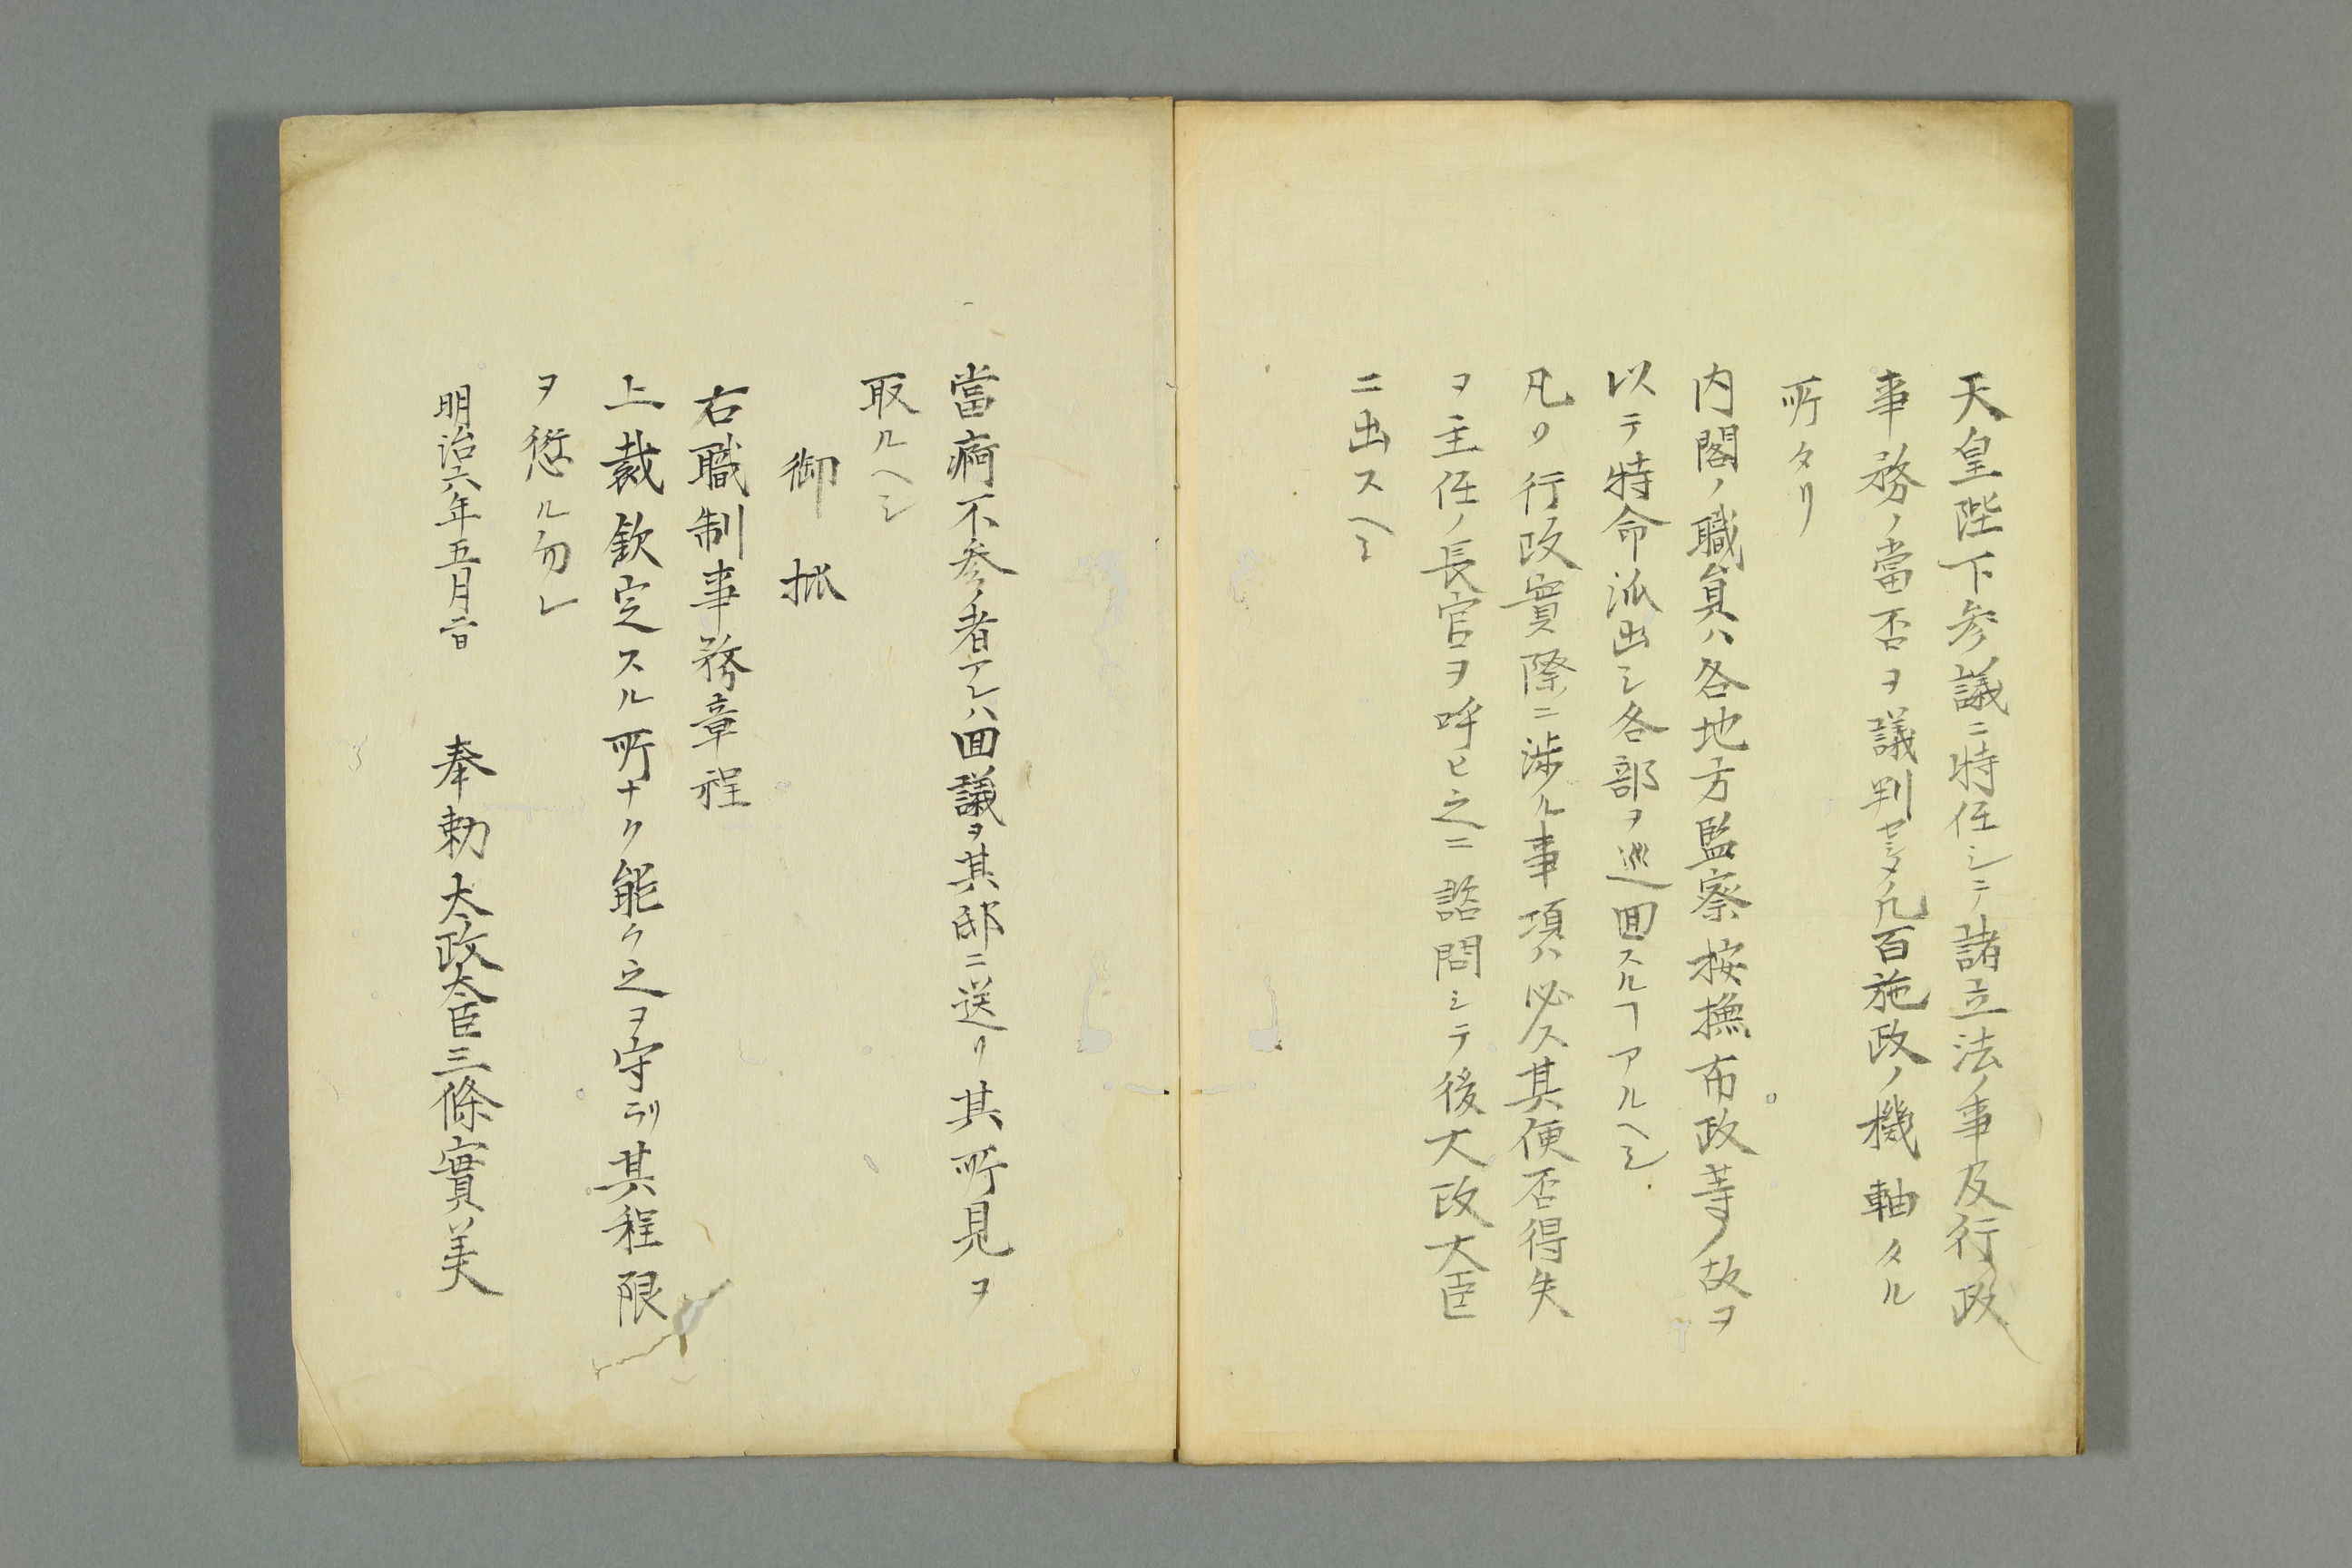 天皇陛下参議ニ特任シテ諸立法ノ事及行政
事務ノ當否ヲ議判セシメ凡百施政ノ機軸タル
所タリ
内閣ノ職員ハ各地方監察按撫布政等ノ故ヲ
以テ特命派出シ各部ヲ巡囬スルヿアルヘシ
凡ソ行政實際ニ渉ル事項ハ必ス其便否得失
ヲ主任ノ長官ヲ呼ヒ之ニ諮問シテ後大政大臣
ニ出スヘシ
當痾不参ノ者アレハ囬議ヲ其邸ニ送リ其所見ヲ
取ルヘシ
御 批
右職制事務章程
上裁欽定スル所ナク能ク之ヲ守リ其程限
ヲ愆ル勿レ
明治六年五月二日 奉勅 太政太臣三條實美